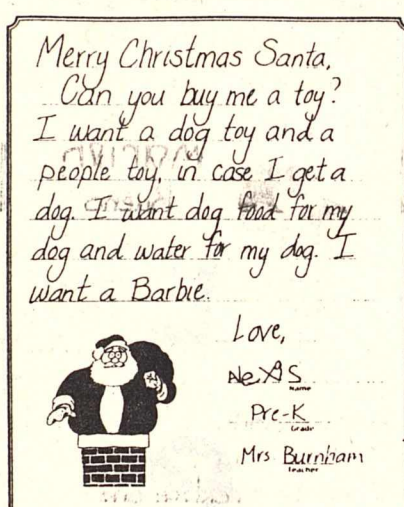 Merry Christmas Santa,
Can you buy me a toy?
I want a dog toy and a
people toy, in case I get a
dog. I want dog food for my
dog and water for my dog. I
want a Barbie.
Love,
NeXS
Name
Pre-K
Grade
Mrs. Burnham
Teacher